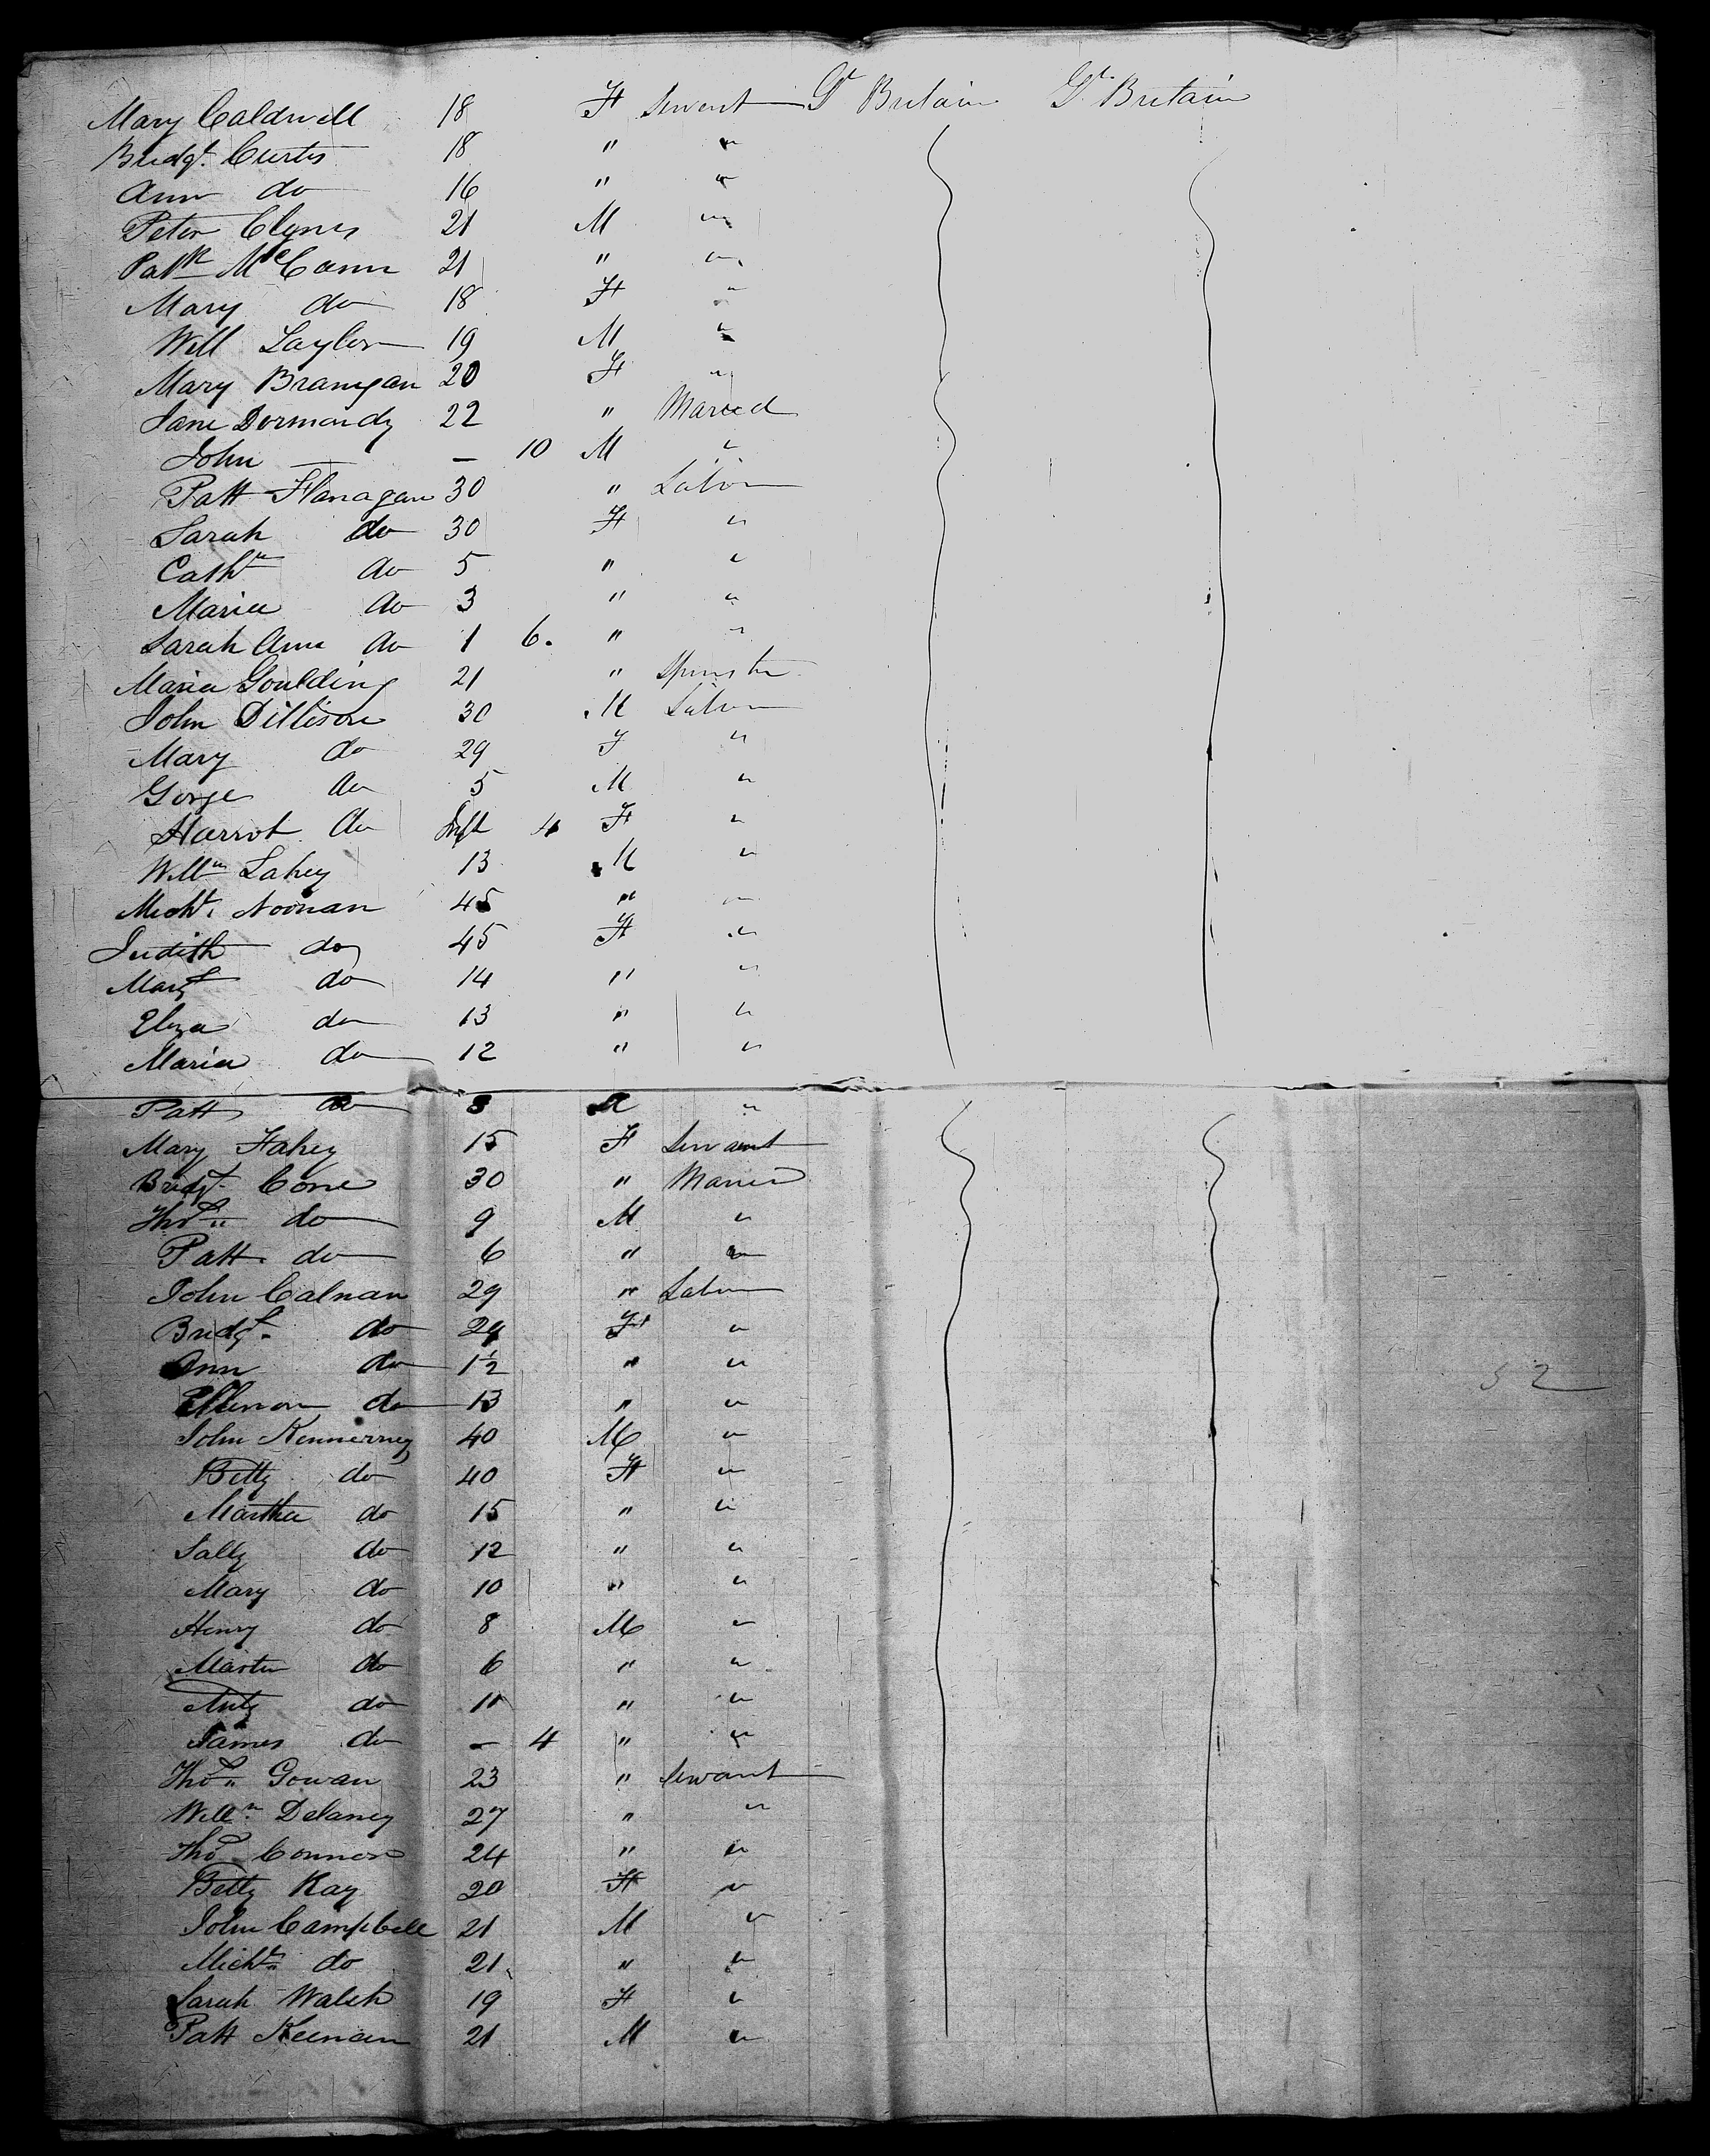 Mary Caldwell 18 F Servent Gt Britain Gt Britain
Bridgt. Curtis 18 " "
Ann do 16 " "
Peter Clynes 21 M "
Patk McCann 21 " "
Mary do 18 F "
Will Taylor 19 M "
Mary Branigan 20 F "
Jane Dormandy 22 " Maried
John — — 10 M "
Patt Flanagan 30 " Labor
Sarah do 30 F "
Cathn do 5 " "
Maria do 3 " "
Sarah Ann do 1 6. " "
Maria Goulding 21 " Spinster
John Dillison 30 M Labor
Mary do 29 F "
Gorge do 5 M "
Harriot do Inft 4 F "
Willm Lahey 13 M "
Michl. Noonan 45 " "
Judith do 45 F "
Margt do 14 " "
Eliza do 13 " "
Maria do 12 " "
Patt do M "
Mary Fahey 15 F Servant
Bridgt. Cone 30 " Maried
Thos do 9 M "
Patt. do 6 " "
John Calnan 29 " Labor
Bridgt. do 29 F "
Ann do 1½ " "
Ellenor do 13 " "
John Kennerney 40 M "
Betty do 40 F "
Martha do 15 " "
Sally do 12 " "
Mary do 10 " "
Henry do 8 M "
Martin do 6 " "
do " "
James do — 4 " "
Thos Gowan 23 " Servant
Willm Delaney 27 " "
Thos Connor 24 " "
Betty Kay 20 F "
John Campbell 21 M "
Michl do 21 " "
Sarah Walsh 19 F "
Patt Keenan 21 M "
52